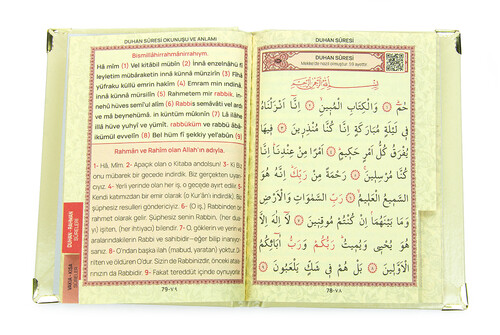 DUHAN SÛRESİ OKUNUŞU VE ANLAMI
Bismillâhirrahmânirrahym.
Hâ mîm (1) Vel kitâbil mubîn (2) İnnâ enzelnâhü fî
leyletim mübâraketin innâ künnâ münzirîn (3) Fîhâ
yüfraku küllü emrin hakîm (4) Emram min ındinâ,
innâ künnâ mürsilîn (5) Rahmetem mir rabbik, in-
nehû hüves semî'ul alîm (6) Rabbis semâvâti vel ard
ve mâ beynehümâ, in küntüm mûkınîn (7) Lâ ilâhe
illâ hüve yuhyî ve yümît, rabbüküm ve rabbü âbâ-
ikümül evvelîn (8) Bel hüm fî şekkiy yel'abûn (9)
Rahmân ve Rahîm olan Allah'ın adıyla.
1- Hâ, Mîm. 2- Apaçık olan o Kitaba andolsun! 3- Ki Biz
onu mübarek bir gecede indirdik. Biz gerçekten uyarı-
cıyız. 4- Yerli yerinde olan her iş, o geceде ayırt edilir. 5-
Kendi katımızdan bir emir olarak (o Kur'ân'ı indirdik). Biz
şüphesiz resulleri göndericiyiz. 6- (O iş,) Rabbinden bir
rahmet olarak gelir. Şüphesiz senin Rabbin, (her du-
yı) işiten, (her ihtiyacı) bilendir. 7- O, göklerin ve yerin ve
aralarındakilerin Rabbi ve sahibidir—eğer bilip inanırsa-
nız. 8- O'ndan başka ilah (mabud, yaratan) yoktur. Di-
rilten ve öldüren O'dur. Sizin de Rabbinizdir, önceki ata-
nızın da Rabbidir. 9- Fakat tereddüt içinde oynuyorlar.
79-٧٩
DUHAN - RAHMAN
SÛRELERİ
VAKIA - KISA
SÛRELER
DUHAN SÛRESİ
DUHAN SÛRESİ
Mekke'de nazil olmuştur. 59 ayettir.
بِسْمِ اللهِ الرَّحْمٰنِ الرَّحِيمِ
حٰمٓ ﴿١﴾ وَالْكِتَابِ الْمُبِينِ ﴿٢﴾ اِنَّٓا اَنْزَلْنَاهُ
فِي لَيْلَةٍ مُبَارَكَةٍ اِنَّا كُنَّا مُنْذِرِينَ ﴿٣﴾ فِيهَا
يُفْرَقُ كُلُّ اَمْرٍ حَكِيمٍ ﴿٤﴾ اَمْرًا مِنْ عِنْدِنَا اِنَّا
كُنَّا مُرْسِلِينَ ﴿٥﴾ رَحْمَةً مِنْ رَبِّكَ اِنَّهُ هُوَ
السَّمِيعُ الْعَلِيمُ ﴿٦﴾ رَبِّ السَّمٰوَاتِ وَالْاَرْضِ
وَمَا بَيْنَهُمَا اِنْ كُنْتُمْ مُوقِنِينَ ﴿٧﴾ لَٓا اِلٰهَ اِلَّا
هُوَ يُحْيِي وَيُمِيتُ رَبُّكُمْ وَرَبُّ اٰبَٓائِكُمُ
الْاَوَّلِينَ ﴿٨﴾ بَلْ هُمْ فِي شَكٍّ يَلْعَبُونَ ﴿٩﴾
78-٧٨